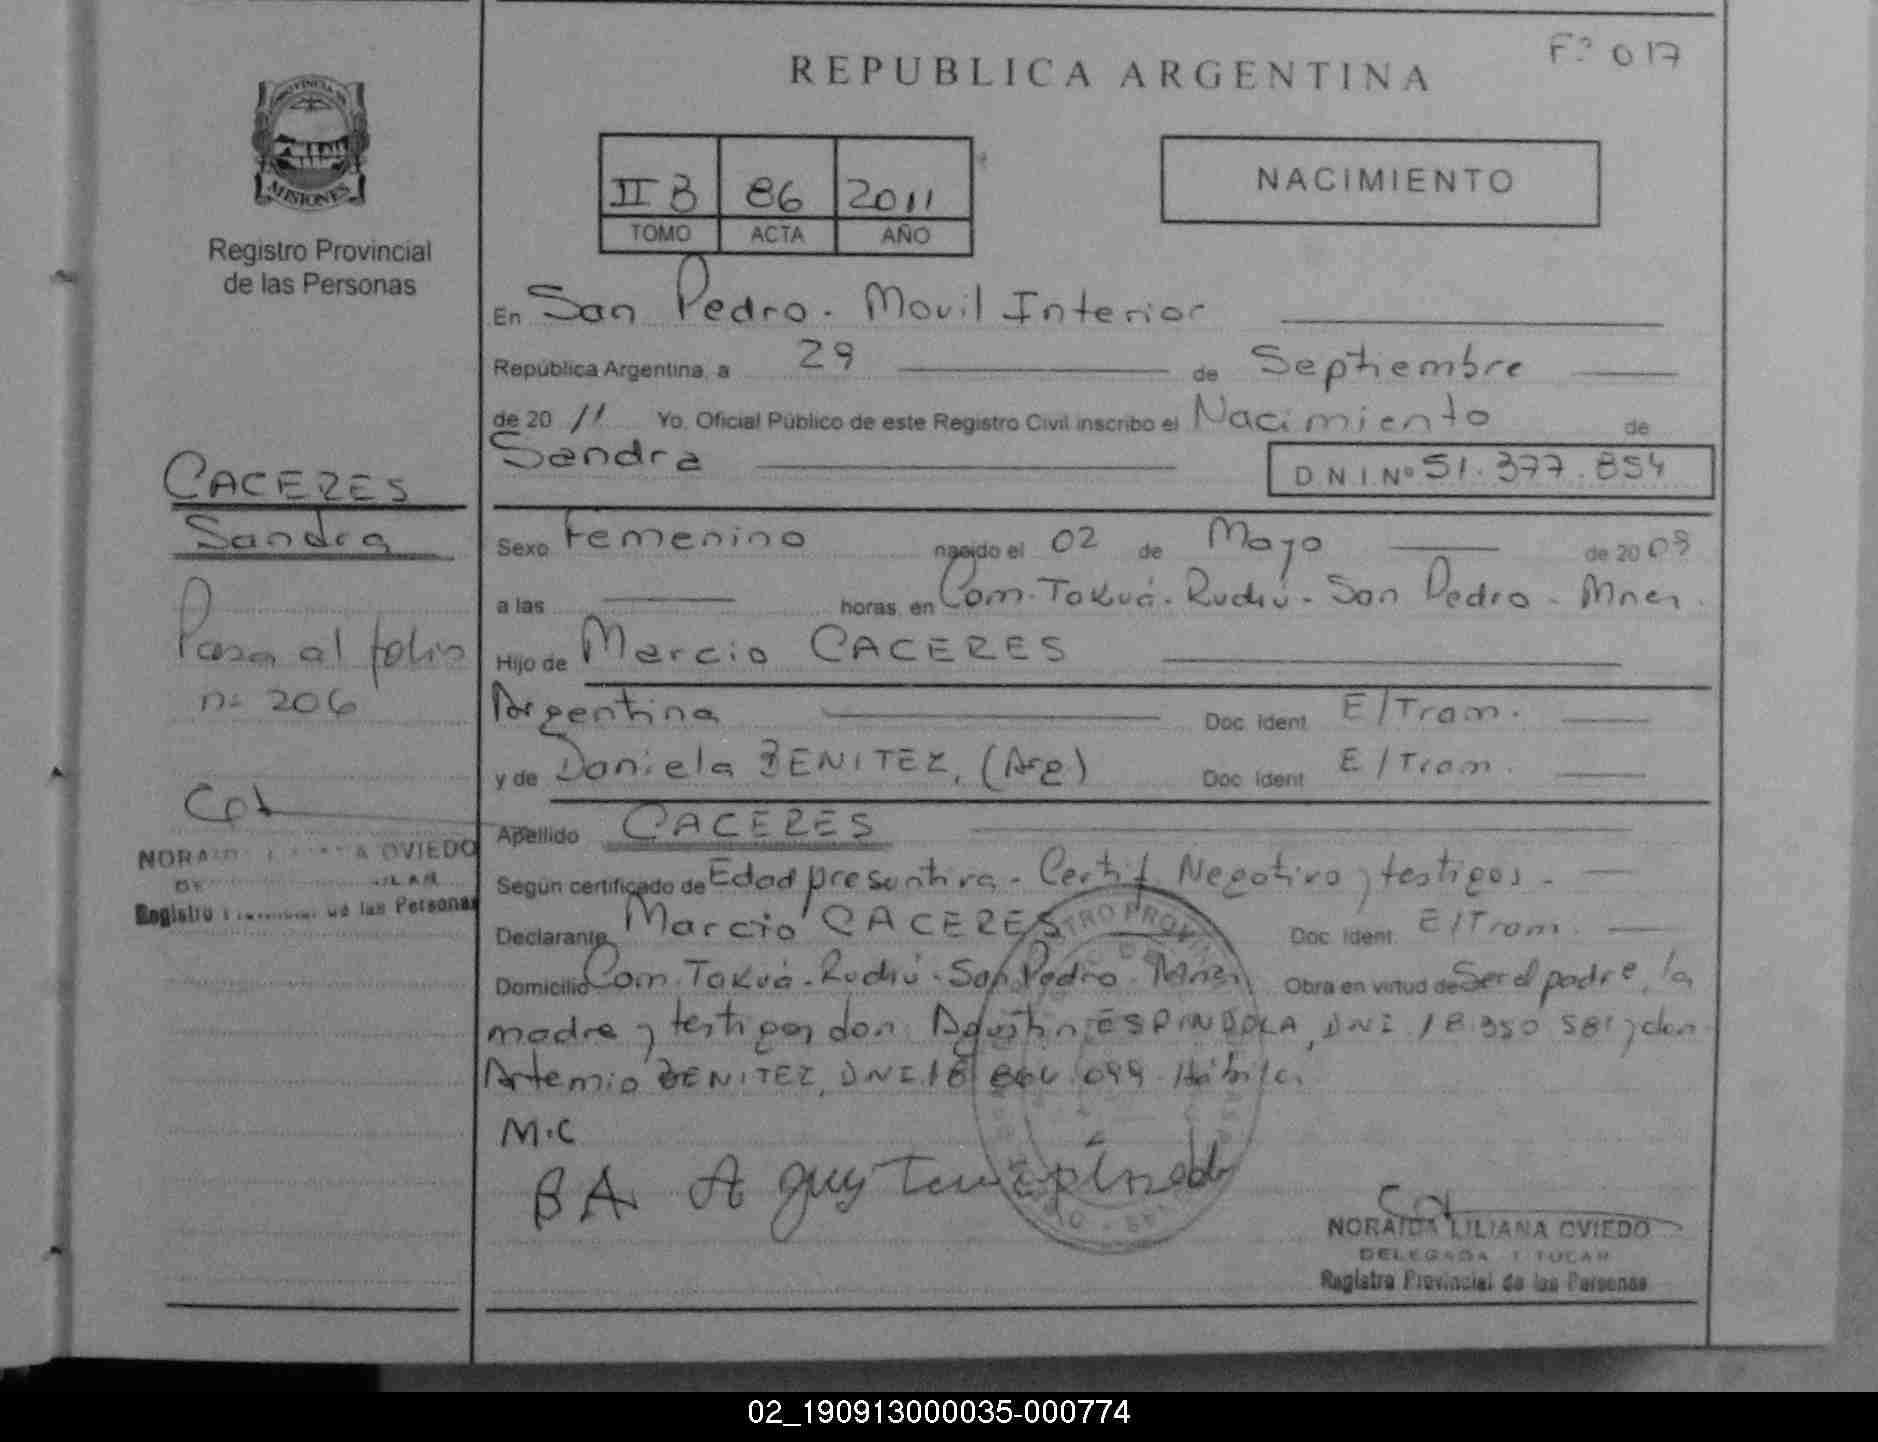 Fº 017
REPUBLICA ARGENTINA
PROVINCIA DE
MISIONES
Registro Provincial
de las Personas
II B 86 2011
TOMO ACTA AÑO
NACIMIENTO
En San Pedro. Movil Interior
República Argentina, a 29 de Septiembre
de 20 11 Yo, Oficial Público de este Registro Civil inscribo el Nacimiento de
Sandra D N I Nº 51.377.854
CACERES
Sandra
Pasa al folio
nº 206
NORA OVIEDO
Registro de las Personas
Sexo Femenino nacido el 02 de Mayo de 20 09
a las horas, en Com. Takuá. Rudiú - San Pedro - Mnes.
Hijo de Marcio CACERES
Argentina Doc. Ident. E/Tram.
y de Daniela BENITEZ, (Arg) Doc. Ident. E/Tram.
Apellido CACERES
Según certificado de Edad presuntiva - Certif. Negativo y testigos.
Declarante Marcio CACERES Doc. Ident. E/Tram.
Domicilio Com. Takuá. Rudiú - San Pedro. Mnes Obra en virtud de Ser el padre, la
madre y testigos don Agustin ESPINDOLA, DNI 18.350 581 y don
Artemio BENITEZ, DNI. 18 044. Hábiles
M.C
BA
NORAIDA LILIANA OVIEDO
DELEGADA TITULAR
Registro Provincial de las Personas
02_190913000035-000774